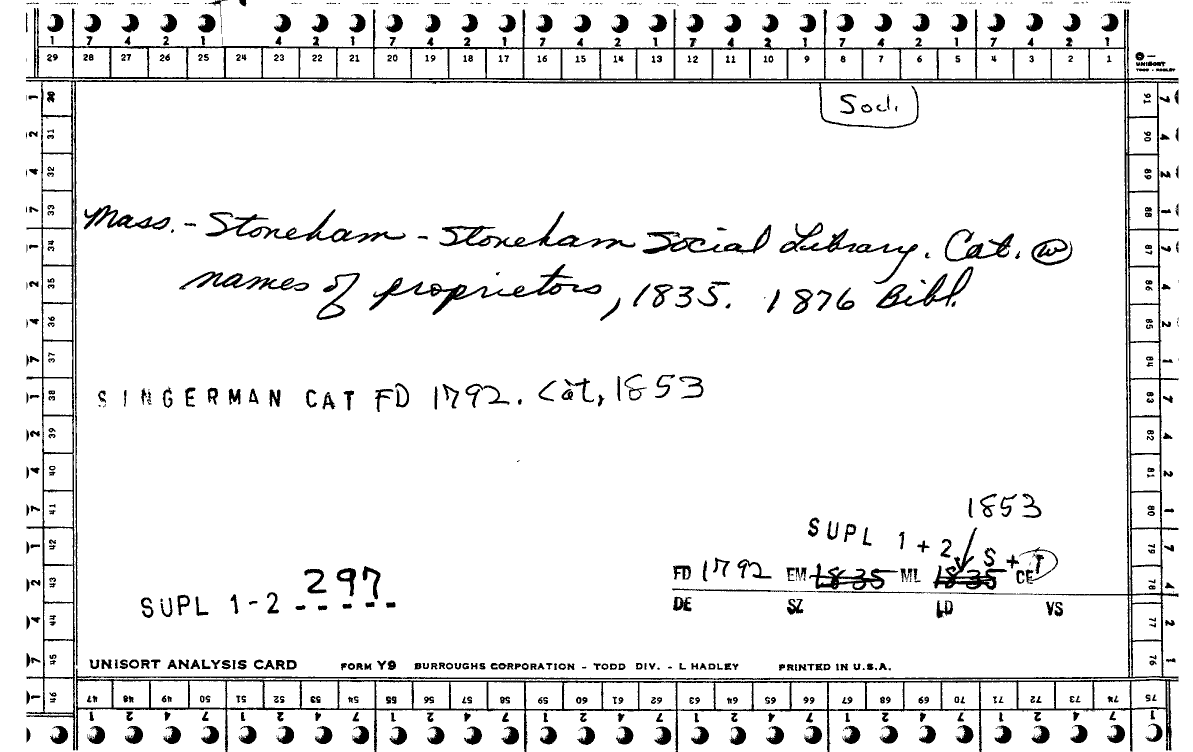 1 7 4 2 1 4 2 1 7 4 2 1 7 4 2 1 7 4 2 1 7 4 2 1 7 4 2 1
29 28 27 26 25 24 23 22 21 20 19 18 17 16 15 14 13 12 11 10 9 8 7 6 5 4 3 2 1
UNISORT
TODD - HADLEY
Socl.
Mass. - Stoneham - Stoneham Social Library. Cat. w
names of proprietors, 1835. 1876 Bibl.
SINGERMAN CAT FD 1792. Cat, 1853
1853
SUPL 1 + 2 S + T
FD 1792 EM 1835 ML 1835 CE
DE SZ LD VS
SUPL 1-2 297
UNISORT ANALYSIS CARD FORM Y9 BURROUGHS CORPORATION - TODD DIV. - L HADLEY PRINTED IN U.S.A.
30 31 32 33 34 35 36 37 38 39 40 41 42 43 44 45 46
91 90 89 88 87 86 85 84 83 82 81 80 79 78 77 76
47 48 49 50 51 52 53 54 55 56 57 58 59 60 61 62 63 64 65 66 67 68 69 70 71 72 73 74 75